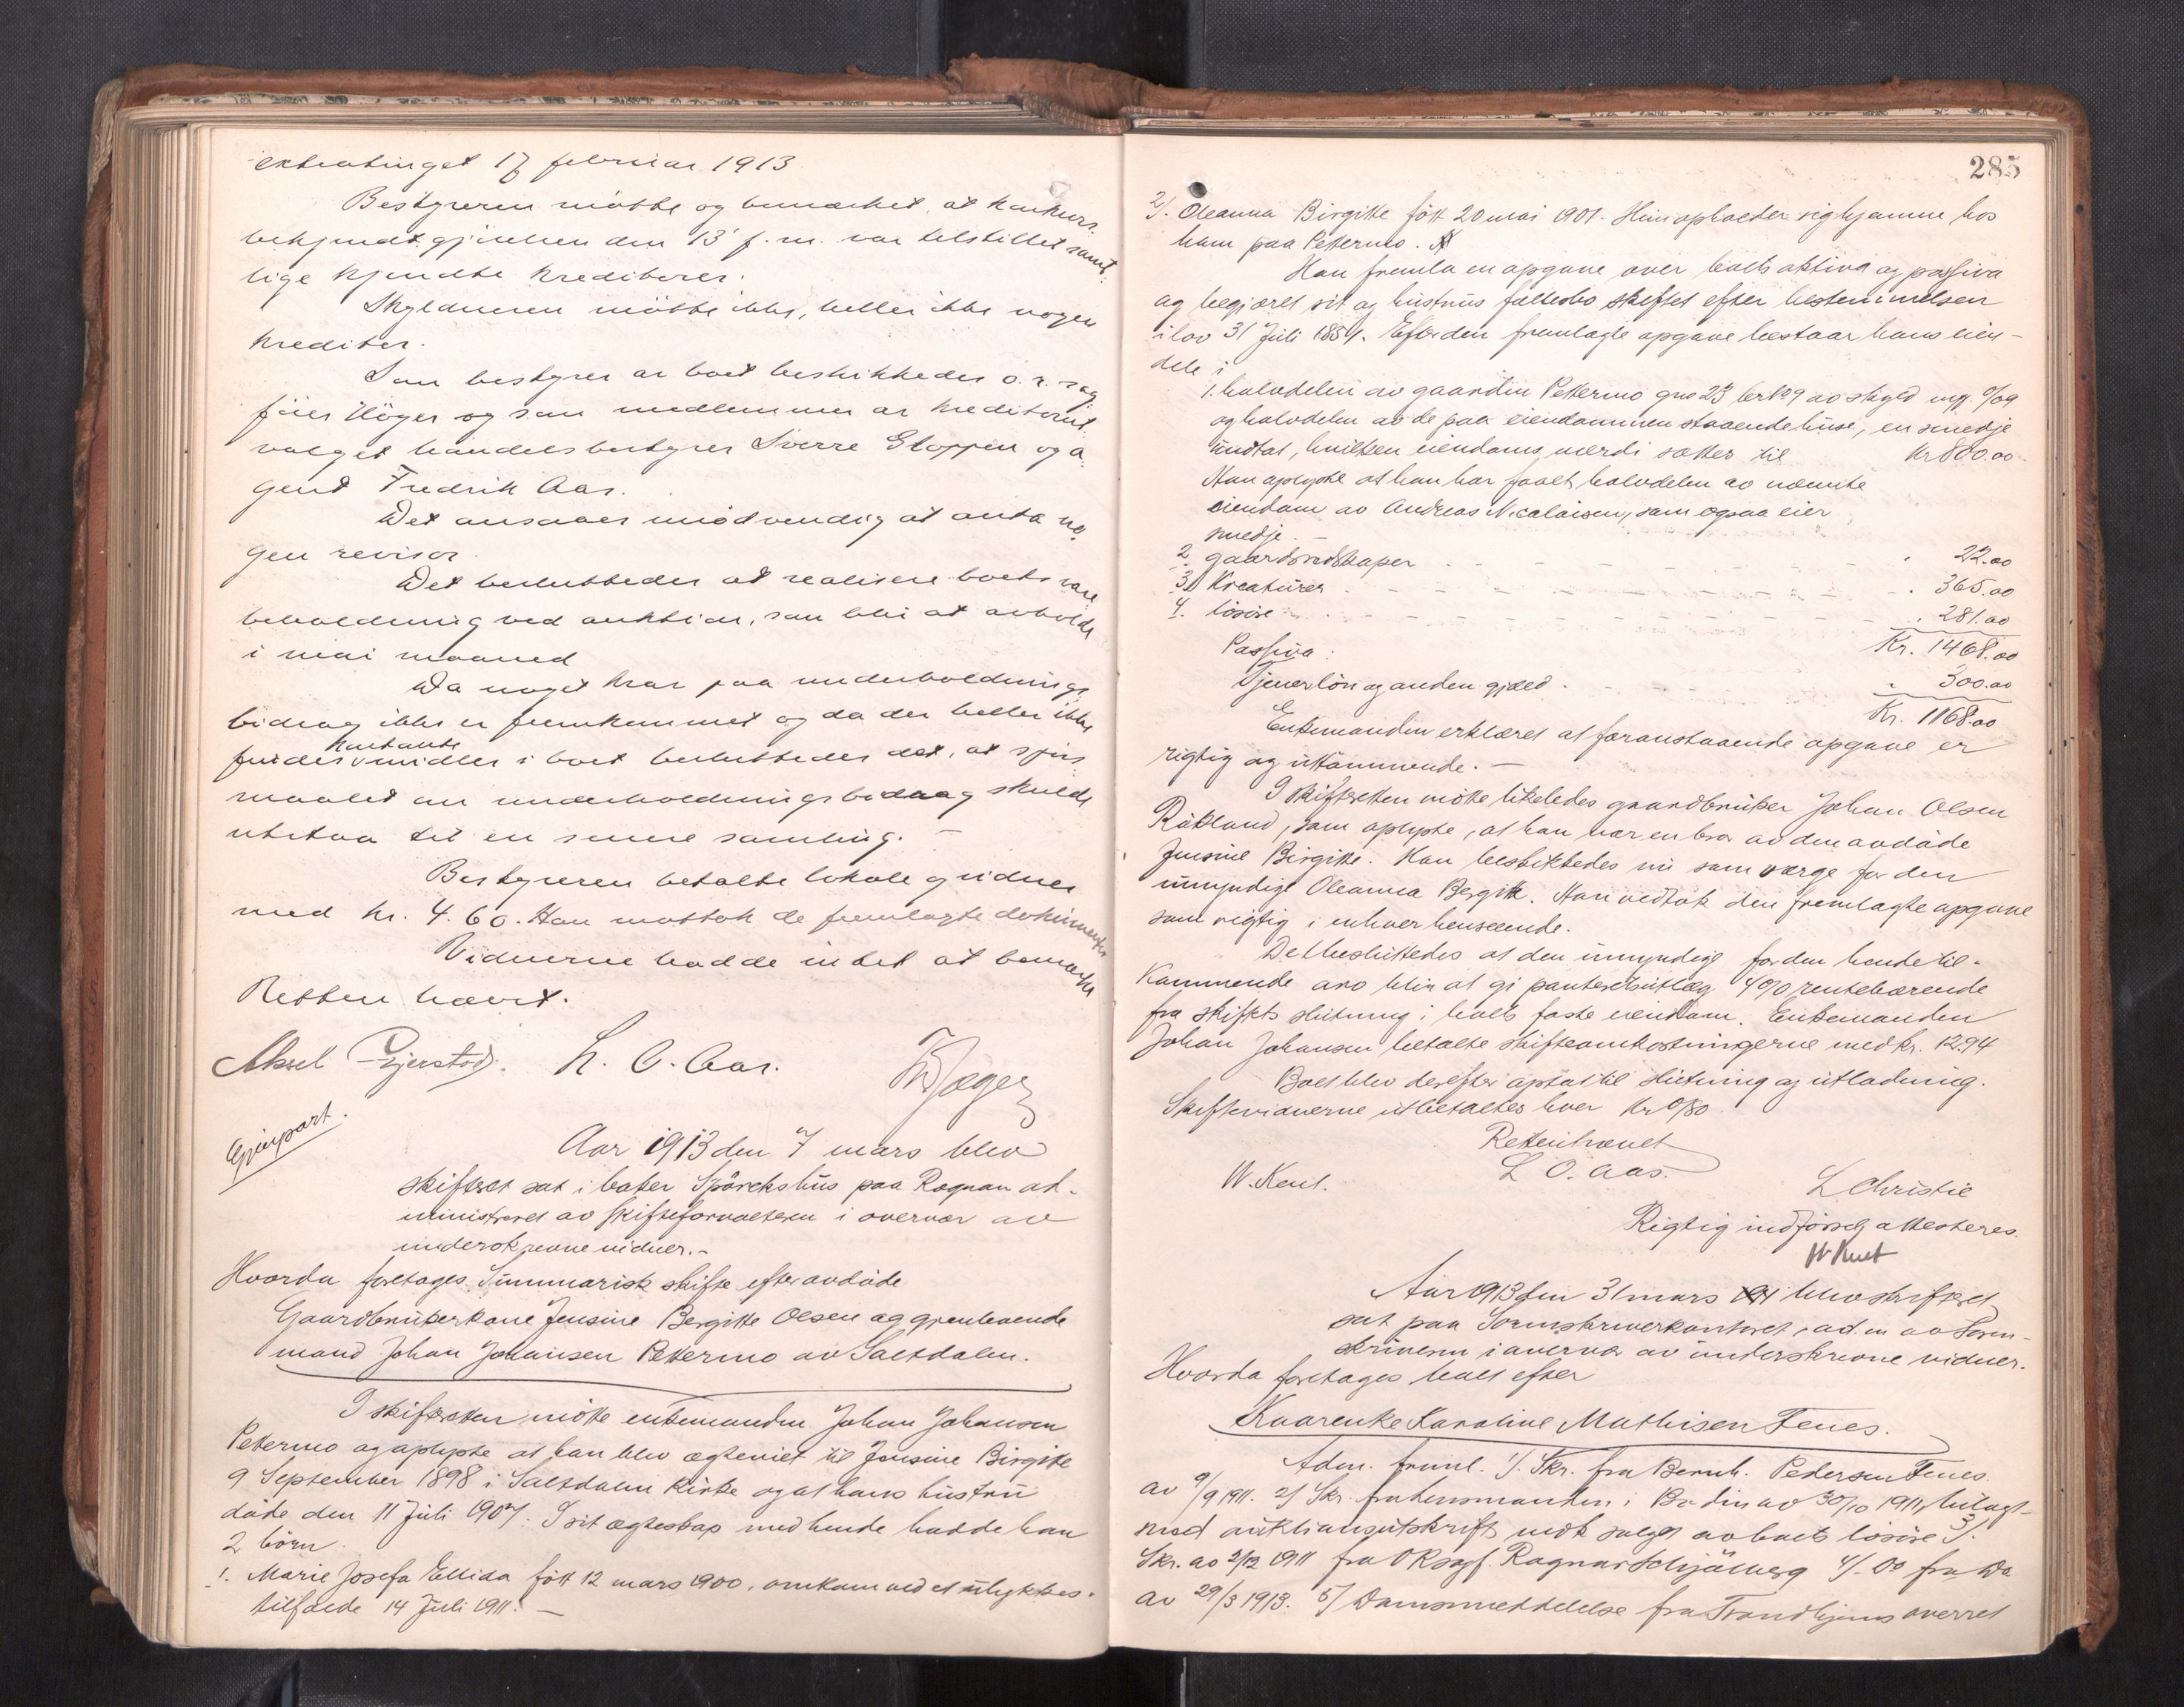 extratinget 17 februar 1913
Bestyreren møtte og bemærket, at konkurs
bekjendtgjørelsen den 13 f. m. var tilstillet samt
lige kjendte kreditorer.
Skyldneren møtte ikke, heller ikke nogen
kreditor.
Som bestyrer av boet beskikkedes o. r. sag
fører Høyer og som medlemmer av kreditorut
valget handelsbestyrer Sverre Gloppen og a
gent Fredrik Aas.
Det ansaaes unødvendig at anta no
gen revisor.
Det besluttedes at realisere boets vare
beholdning ved auktion, som blir at avholde
i mai maaned
Da noget krav paa underholdnings
bidrag ikke er fremkommet og da der heller ikke
findes kontante midler i boet besluttedes det, at spørs
maalet om underholdningsbidrag skulde
utstaa til en senere samling. —
Bestyreren betalte lokale og vidner
med kr. 4.60. Han mottok de fremlagte dokumenter
Vidnerne hadde intet at bemærke
Retten hævet.
Aksel Gjerstad. L. O. Aas.
Gjenpart.
Aar 1913 den 7 mars blev
skifteret sat i baker Spörckshus paa Rognan ad-
ministreret av skifteforvalteren i overvær av
underskrevne vidner.-
Hvorda foretages Summarisk skifte efter avdøde
Gaardbrukerkone Jensine Bergitte Olsen og gjenlevende
mand Johan Johansen Pettermo av Saltdalen.
I skifteretten møtte enkemanden Johan Johansen
Pettermo og oplyste at han blev ægteviet til Jensine Birgitte
9 September 1898 i Saltdalen kirke og at hans hustru
døde den 11 Juli 1907. I sit ægteskap med hende hadde han
2 børn.
1. Marie Josefa Ellida født 12 mars 1900, omkom ved et ulykkes-
tilfælde 14 Juli 1911. —
285
2/. Oleanna Birgitte født 20 mai 1901. Hun opholder sig hjemme hos
ham paa Pettermo.
Han fremla en opgave over boets aktiva og passiva
og begjæret sit og hustrus fællesbo skiftet efter bestemmelsen
i lov 31 Juli 1854. Efter den fremlagte opgave bestaar hans eien-
dele i
1. halvdelen av gaarden Pettermo gno 23 brno 9 av skyld mg. 0/09
og halvdelen av de paa eiendommen staaende huse, en smedje
undtat, hvilken eiendoms værdi sættes til Kr 800.00
Han oplyste at han har faaet halvdelen av nævnte
eiendom av Andreas Nicolaisen, som ogsaa eier
smedje. —
2 gaardsredskaper . 22.00
3) Kreaturer . 365.00
4. løsøre . 281.00
Passiva: Kr. 1468.00
Tjenerløn og anden gjæld . 300.00
Kr. 1168.00
Enkemanden erklæret at foranstaaende opgave er
rigtig og uttømmende. —
I skifteretten møtte likeledes gaardbruker Johan Olsen
Røkland, som oplyste, at han var en bror av den avdøde
Jensine Birgitte. Han beskikkedes nu som værge for den
umyndige Oleanna Bergitte. Han vedtok den fremlagte opgave
som rigtig i enhver henseende.
Det besluttedes at den umyndige for den hende til-
kommende arv blir at gi panteretsutlæg 4% rentebærende
fra skiftets slutning i boets faste eiendom. Enkemanden
Johan Johansen betalte skifteomkostningerne med kr. 12.94
Boet blev derefter optat til slutning og utlodning.
Skiftevidnerne utbetaltes hver Kr 0/80
Retten hævet
W. Knut. L O. Aas. L Christie
Rigtig indførsel attesteres.
W. Knut
Aar 1913 den 31 mars blev skifteret
sat paa Sorenskriverkontoret, ad.m av Soren-
skriveren i overvær av underskrevne vidner.
Hvorda foretages boet efter
Kaarenke Karoline Mathisen Fenes.
Adm. freml. 1/. Skr. fra Bernh. Pedersen Fenes
av 9/9 1911. 2/ Skr. fra lensmanden i Bodin av 30/10 1911, bilagt
med auktionsutskrift vedk salget av boets løsøre 3/.
Skr. av 2/12 1911 fra O R sagf. Ragnar Schjölberg 4/. Do fra Do
av 29/3 1913. 5/ Domsmeddelelse fra Trondhjems overret